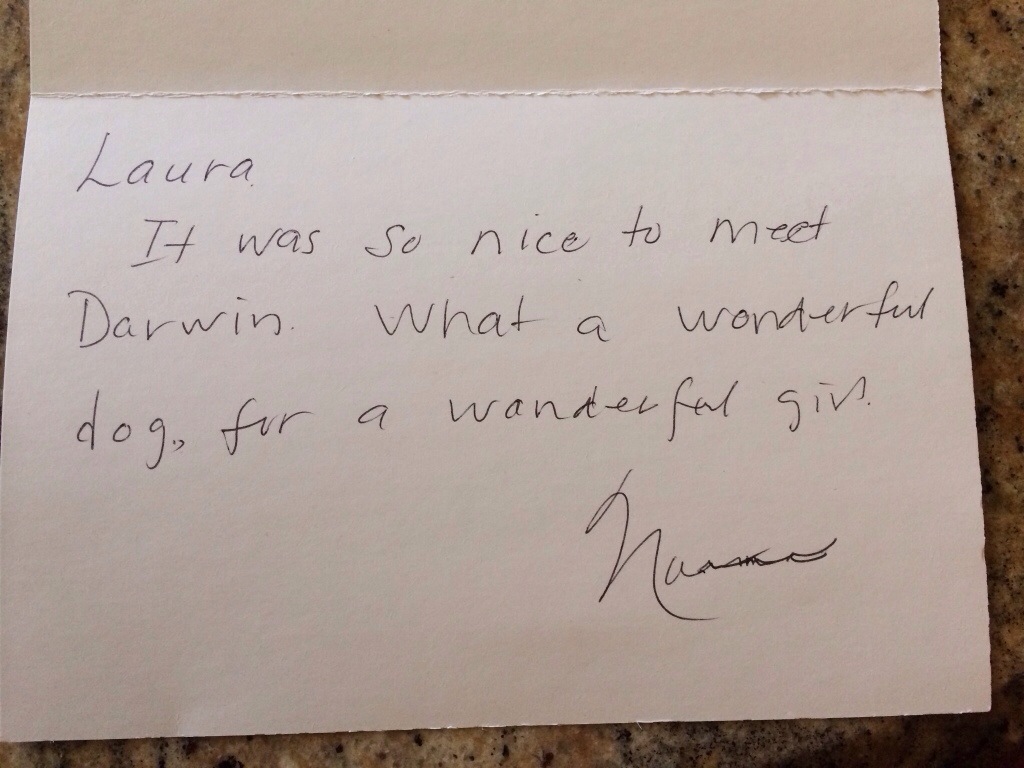 Laura
It was so nice to meet
Darwin. What a wonderful
dog, for a wanderful girl.